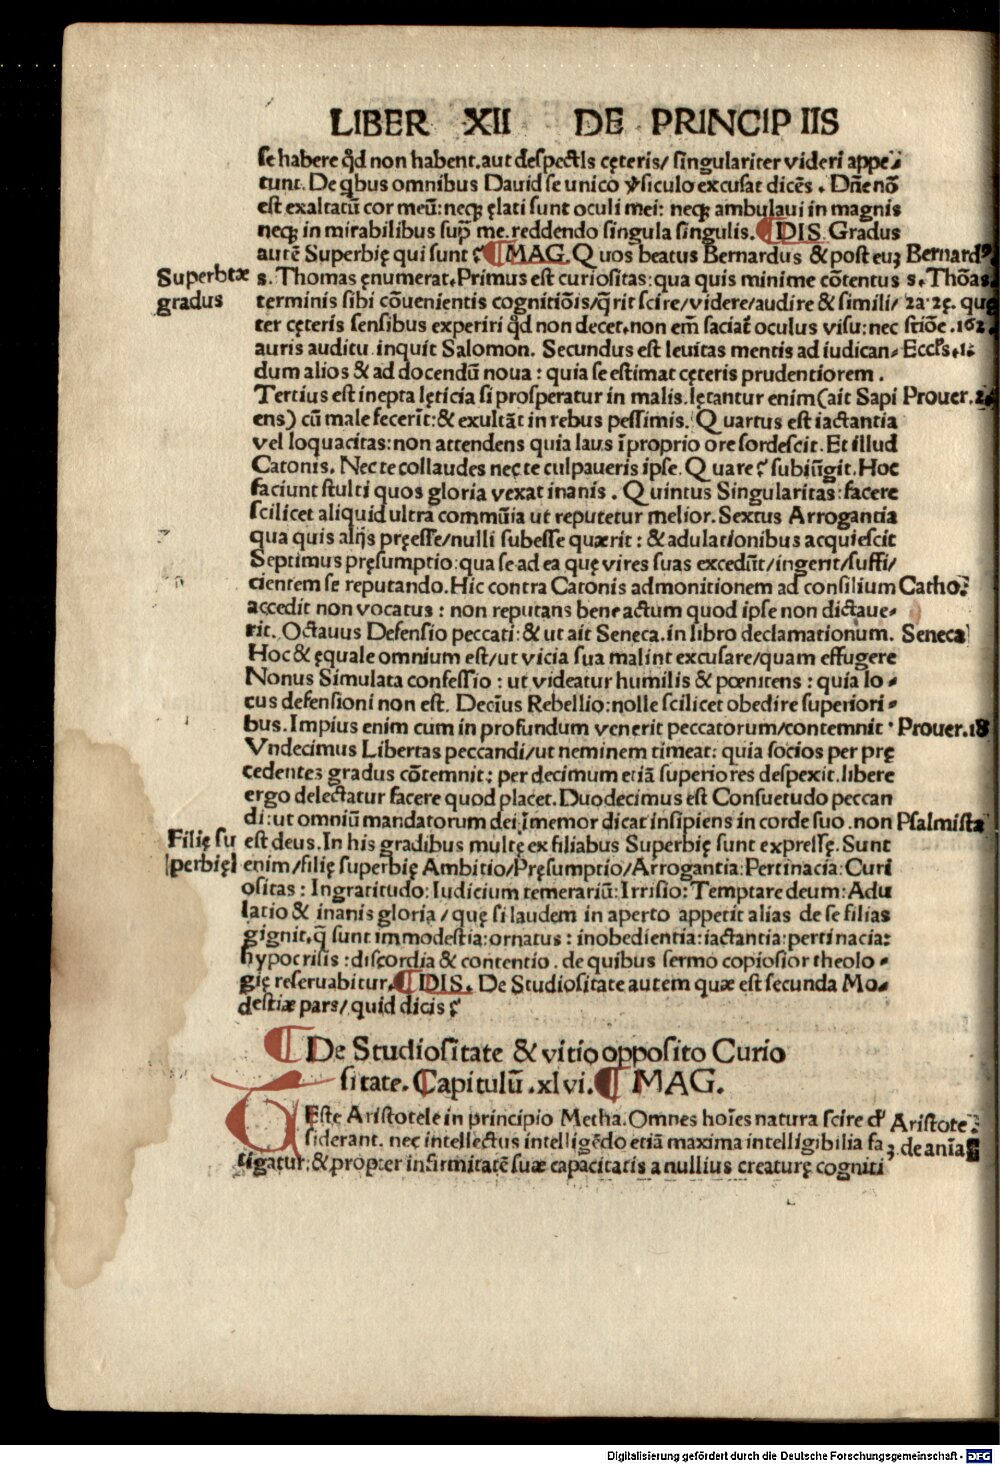 LIBER XII DE PRINCIPIIS
se habere qđ non habent. aut despectis cęteris/ singulariter videri appe⸗
tunt. De qbus omnibus Dauid se unico ꝟsiculo excusat dicēs. Dñe nō
est exaltatū cor meū: neqꝫ ęlati sunt oculi mei: neqꝫ ambulaui in magnis
neqꝫ in mirabilibus sup̄ me. reddendo singula singulis. ¶ DIS. Gradus
autē Superbię qui sunt? ¶ MAG. Quos beatus Bernardus & post euꝫ Bernardꝰ
Superbiæ
gradus
s. Thomas ęnumerat. Primus est curiositas: qua quis minime cōtentus s. Thōas
terminis sibi cōuenientis cognitiōis/ q̄rit scire/ videre/ audire & simili/ 2a. 2ę. que
ter cęteris sensibus experiri qđ non decet. non em̄ saciat̄ oculus visu: nec stiōe .162
auris auditu inquit Salomon. Secundus est leuitas mentis ad iudican⸗ Eccl's. 1.
dum alios & ad docendū noua: quia se estimat cęteris prudentiorem.
Tertius est inepta lęticia si prosperatur in malis. lętantur enim (ait Sapi Prouer. 2.
ens) cū male fecerīt: & exultāt in rebus pessimis. Quartus est iactantia
vel loquacitas: non attendens quia laus ī proprio ore sordescit. Et illud
Catonis. Nec te collaudes nec te culpaueris ipse. Quare? subiūgit. Hoc
faciunt stulti quos gloria vexat inanis. Quintus Singularitas: facere
scilicet aliquid ultra commūia ut reputetur melior. Sextus Arrogantia
qua quis alijs pręesse/ nulli subesse quærit: & adulationibus acquiescit
Septimus pręsumptio: qua se ad ea quę vires suas excedūt/ ingerit/ suffi/
cientem se reputando. Hic contra Catonis admonitionem ad consilium Catho.
accedit non vocatus: non reputans bene actum quod ipse non dictaue⸗
rit. Octauus Defensio peccati: & ut ait Seneca. in libro declamationum. Seneca
Hoc & ęquale omnium est/ ut vicia sua malint excusare/ quam effugere
Nonus Simulata confessio: ut videatur humilis & pœnitens: quia lo⸗
cus defensioni non est. Decīus Rebellio: nolle scilicet obedire superiori⸗
bus. Impius enim cum in profundum venerit peccatorum/ contemnit. Prouer. 18
Vndecimus Libertas peccandi/ ut neminem timeat: quia socios per prę
cedentes gradus cōtemnit: per decimum etiā superiores despexit. libere
ergo delectatur facere quod placet. Duodecimus est Consuetudo peccan
di: ut omniū mandatorum dei īmemor dicat insipiens in corde suo. non Psalmista
Filię su
perbię
est deus. In his gradibus multę ex filiabus Superbię sunt expressę. Sunt
enim/ filię superbię Ambitio/ Pręsumptio/ Arrogantia: Pertinacia: Curi
ositas: Ingratitudo: Iudicium temerariū: Irrisio: Temptare deum: Adu
latio & inanis gloria/ quę si laudem in aperto appetit alias de se filias
gignit. q̄ sunt immodestia: ornatus: inobedientia: iactantia: pertinacia:
hypocrisis: discordia & contentio. de quibus sermo copiosior theolo⸗
gię reseruabitur. ¶ DIS. De Studiositate autem quæ est secunda Mo⸗
destiæ pars/ quid dicis?
¶ De Studiositate & vitio opposito Curio
sitate. Capitulū .xlvi. ¶ MAG.
TEste Aristotele in principio Metha. Omnes hoīes natura scire de Aristote.
siderant. nec intellectus intelligēdo etiā maxima intelligibilia fa ꝫ. de anīa
tigatur: & propter infirmitatē suæ capacitatis a nullius creaturę cogniti
Digitalisierung gefördert durch die Deutsche Forschungsgemeinschaft - DFG